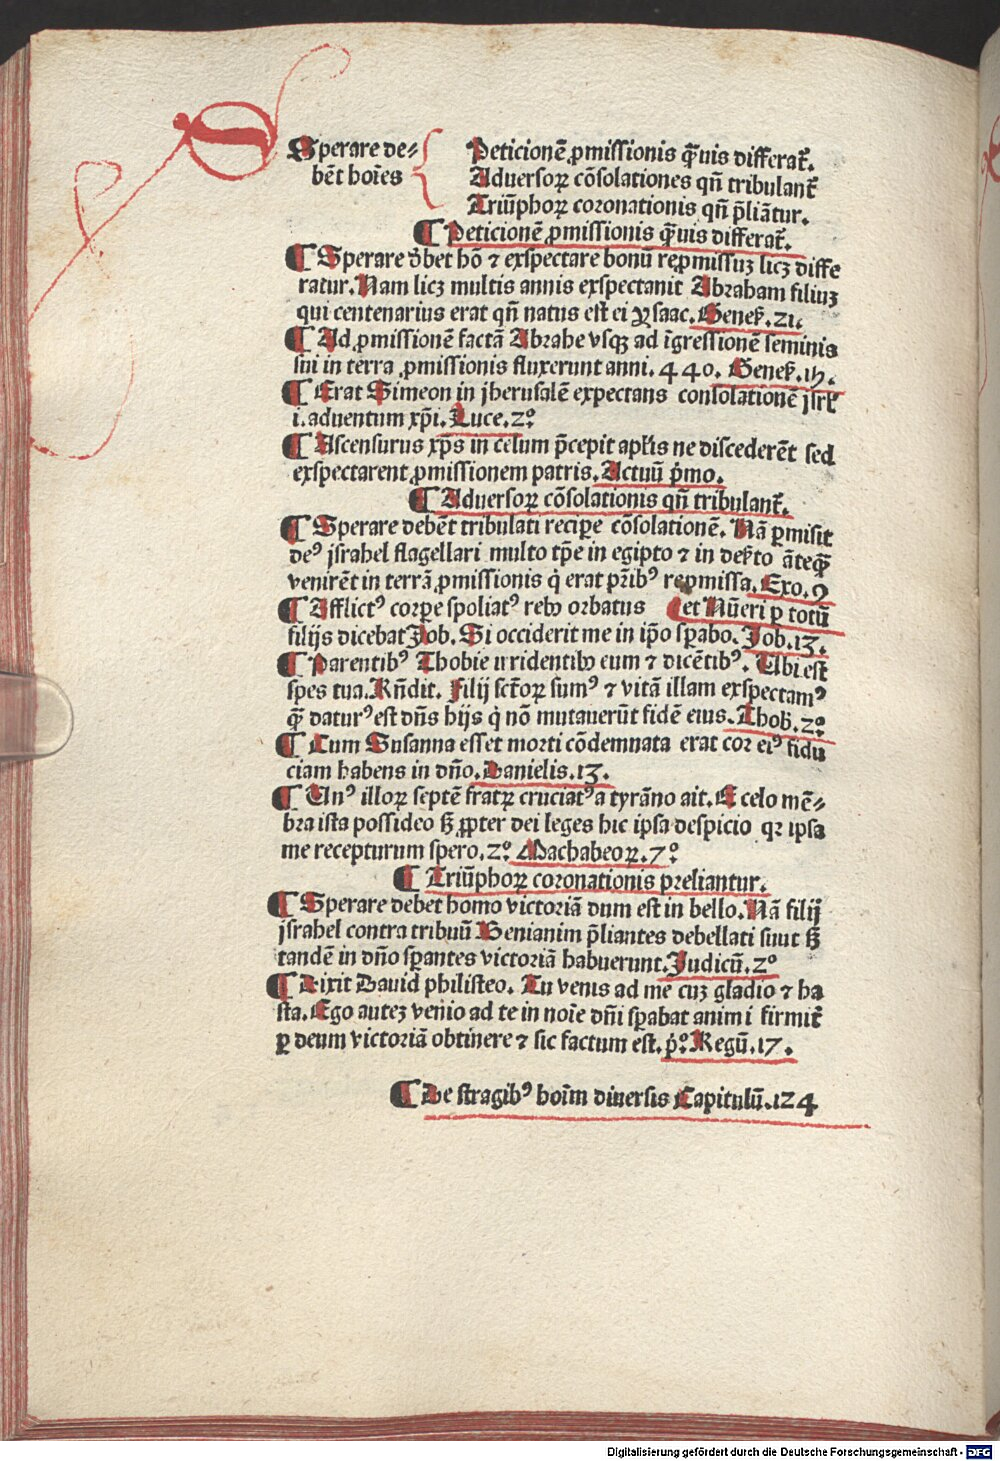 S
Sperare de⸗
bēt hoīes
Peticionē ꝓmissionis qꝫuis differat᷑.
Aduersoꝝ cōsolationes qn̄ tribulant᷑
Triūphoꝝ coronationis qn̄ p̄liātur.
¶ Peticionē ꝓmissionis qꝫuis differat᷑.
¶ Sperare dꝫbet hō ⁊ exspectare bonū reꝓmissuꝫ licꝫ diffe
ratur. Nam licꝫ multis annis exspectauit Abraham filiuꝫ
qui centenarius erat qn̄ natus est ei ysaac. Geneẜ. 21.
¶ Ad ꝓmissionē factā Abrahe vsqꝫ ad īgressionē seminis
sui in terra ꝓmissionis fluxerunt anni. 440. Geneẜ. 15.
¶ Erat Simeon in jherusalē expectans consolationē jsrl̄
i. aduentum xp̄i. Luce. 2°
¶ Ascensurus xp̄s in celum p̄cepit apl̄is ne discederēt sed
exspectarent ꝓmissionem patris. Actuū p̄mo.
¶ Aduersoꝝ cōsolationis qn̄ tribulant᷑.
¶ Sperare debēt tribulati recipꝑe cōsolationē. Nā ꝑmisit
deꝰ jsrahel flagellari multo tp̄e in egipto ⁊ in deẜto āteqꝫ
venirēt in terrā ꝓmissionis q̇ erat pr̄ibꝰ reꝓmissa. Exo. 9
¶ Afflictꝰ corpe spoliatꝰ rebꝰ orbatus et Nūeri ꝑ totū
filijs dicebat Job. Si occiderit me in ip̄o sꝑabo. Job. 13.
¶ Parentibꝰ Thobie irridentibꝰ eum ⁊ dicētibꝰ. Ubi est
spes tua. Rn̄dit. Filij sct̄oꝝ sumꝰ ⁊ vitā illam exspectamꝰ
qꝫ daturꝰ est dn̄s hijs q̇ nō mutauerūt fidē eius. Thob̄. 2°
¶ Cum Susanna esset morti cōdemnata erat cor eiꝰ fidu
ciam habens in dn̄o. Danielis. 13.
¶ Unꝰ illoꝝ septē fratꝝ cruciatꝰ a tyrāno ait. E celo mē⸗
bra ista possideo sꝫ ꝓpter dei leges hic ipsa despicio qꝛ ipsa
me recepturum spero. 2° Machabeoꝝ. 7°
¶ Triūphoꝝ coronationis preliantur.
¶ Sperare debet homo victoriā dum est in bello. Nā filij
jsrahel contra tribuū Benianim p̄liantes debellati suut sꝫ
tandē in dn̄o sꝑantes victoriā habuerunt. Judicū. 2°
¶ Dixit Dauid philisteo. Tu venis ad me cuꝫ gladio ⁊ ha
sta. Ego auteꝫ venio ad te in noīe dn̄i sꝑabat anim i firmit᷑
ꝑ deum victoriā obtinere ⁊ sic factum est. p̄° Regū. 17.
¶ De stragibꝰ hoīm diuersis Capitulū. 124
Digitalisierung gefördert durch die Deutsche Forschungsgemeinschaft - DFG